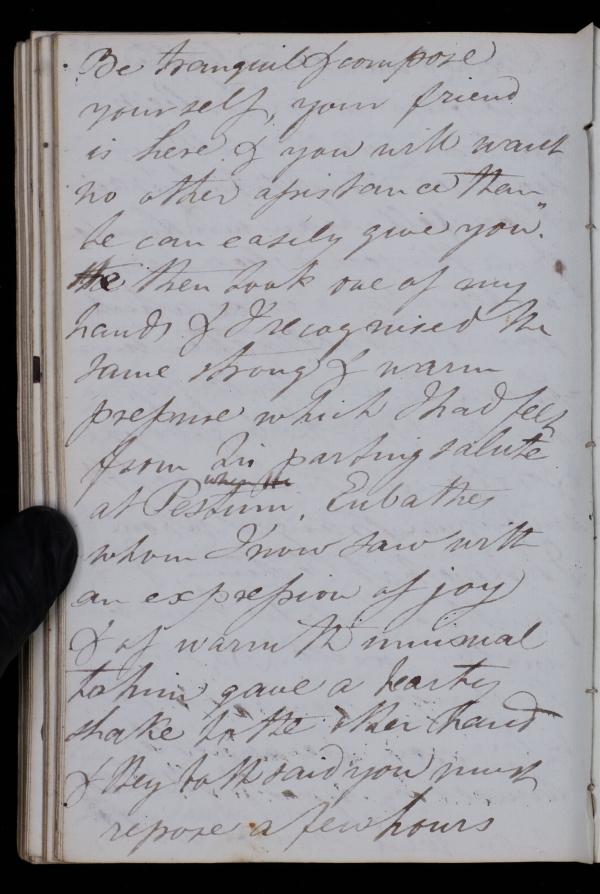 Be tranquil & compose
yourself, your friend
is here & you will want
no other assistance than
he can easily give you".
He then took one of my
hands & I recognised the
same strong & warm
pressure which I had felt
from his parting salute
when He
at Pestum. Eubathes
whom I now saw with
an expression of joy
& of warmth unusual
to him gave a hearty
shake to the other hand
& they both said you must
repose a few hours